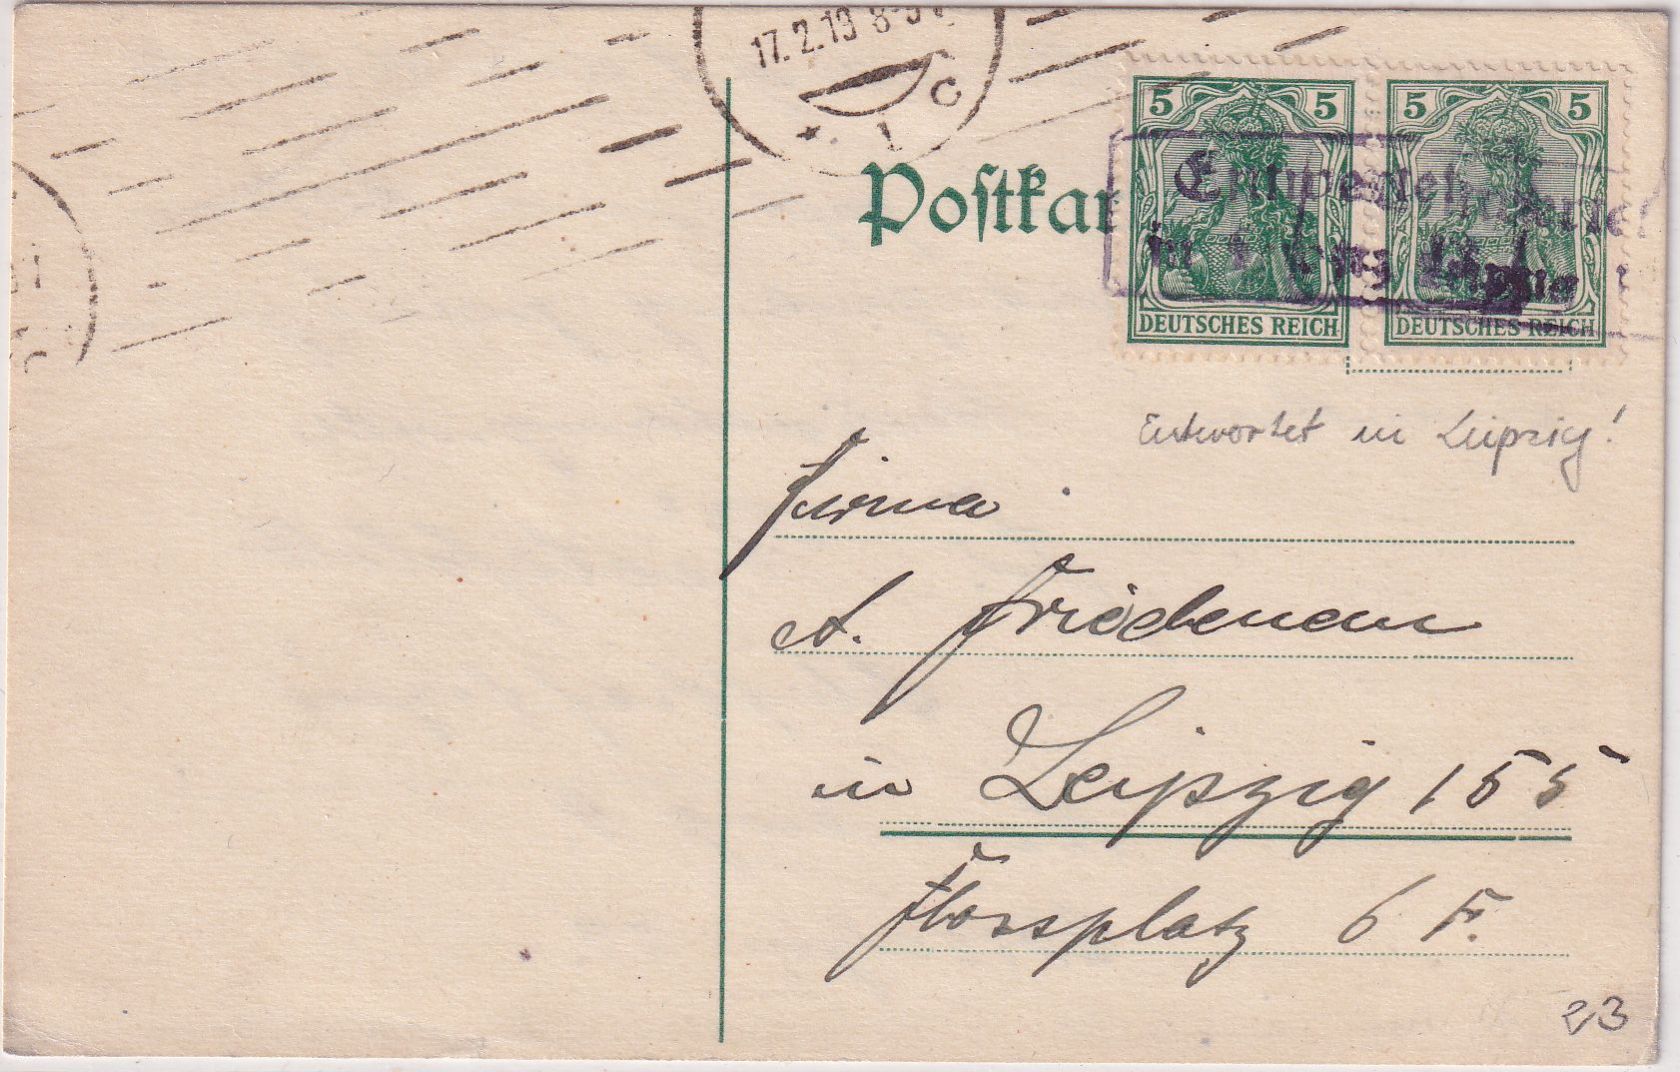 17.2.19 8-9V
* 1 C
Postkar
5 5 5 5
in Leipzig
DEUTSCHES REICH DEUTSCHES REICH
Entwertet in Leipzig!
Firma
A. Friedemann
in Leipzig 155
Flossplatz 6 F.
23